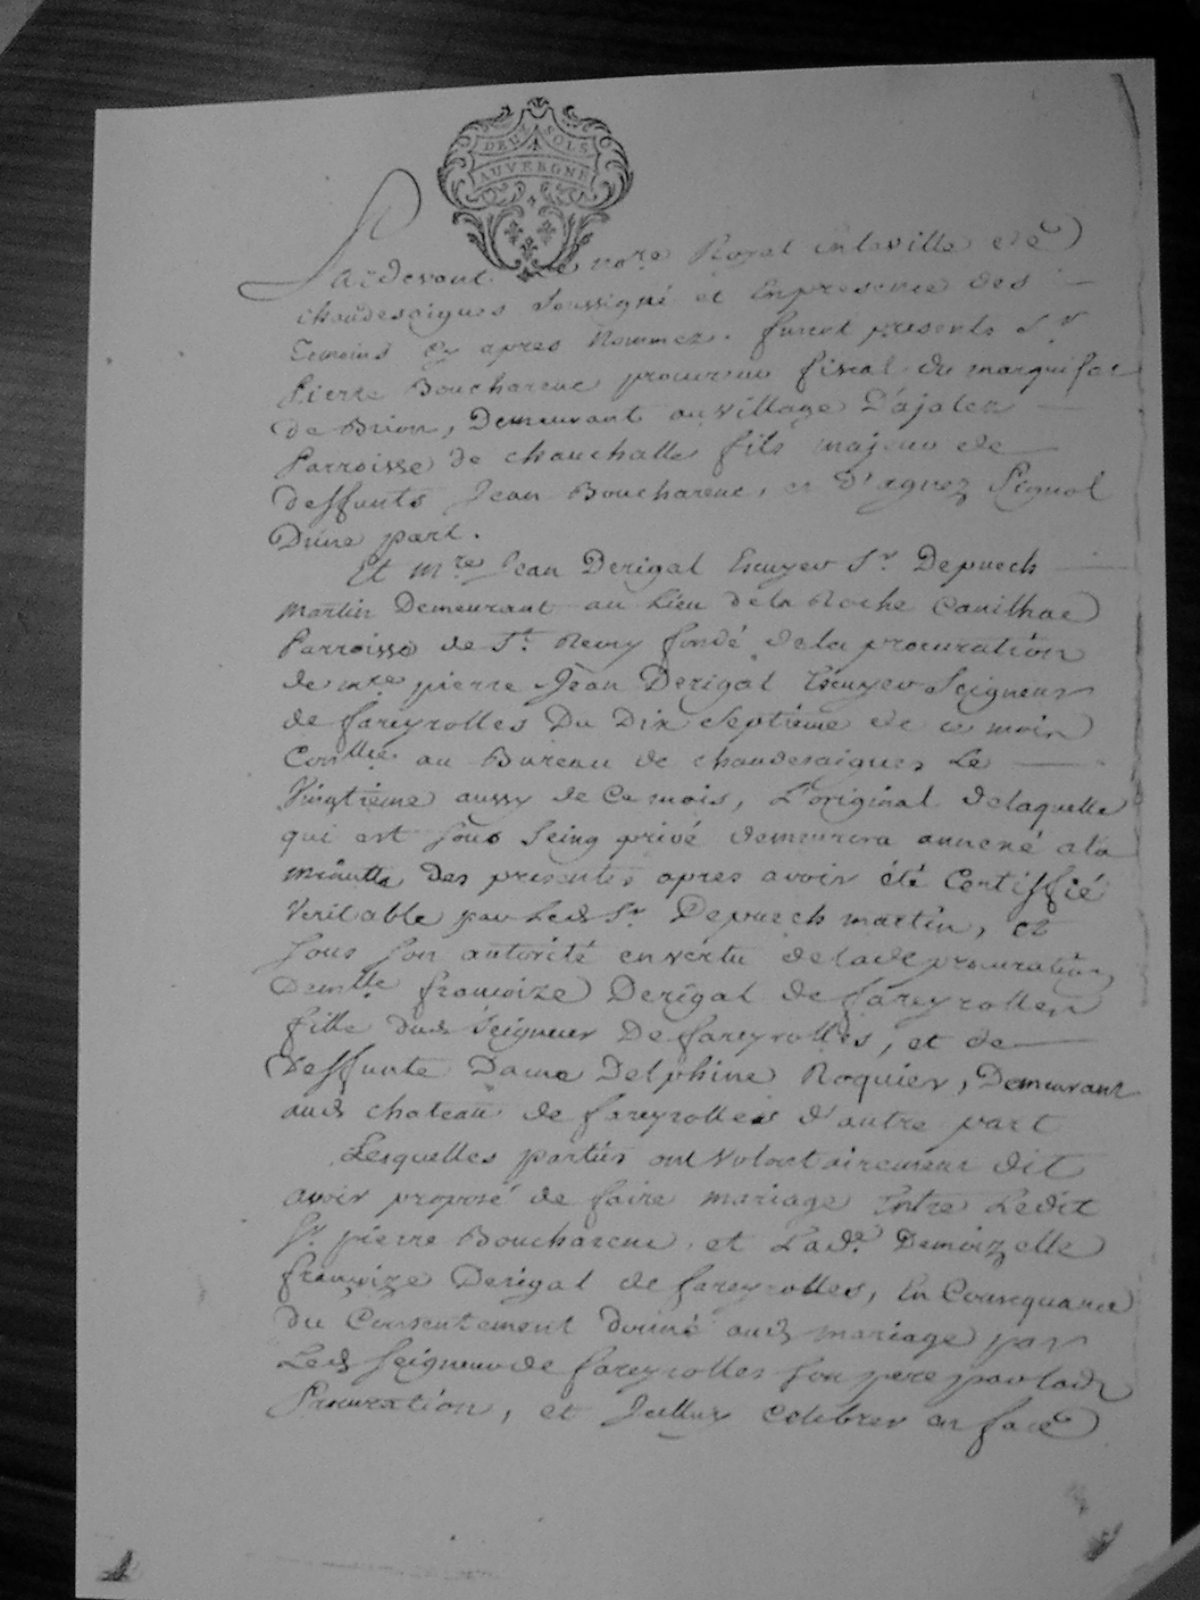 DEUX SOLS
AUVERGNE
Pardevant le no.re Royal en la ville de
chaudesaigues soussigné et En presence des
Temoins cy apres Nommez. furent presents S.r
Pierre Boucharenc procureur fiscal du marquisat
de Brion, Demeurant au village D'ajalez
Parroisse de chauchalle fils majeur de
deffunts Jean Boucharenc, et D'agnez Pignol
D'une part.
Et m.re Jean Derigal Ecuyer S.r Depuech
martin Demeurant au Lieu de la Roche Canilhac
Parroisse de S.t Remy fondé de la procuration
de m.re pierre Jean Derigal Ecuyer Seigneur
de fareyrolles Du Dix Septième de ce mois
Con.llée au Bureau de chaudesaigues Le
Vingtième aussy de Ce mois, L'original de laquelle
qui est sous Seing privé demeurera annexé a la
minutte des presentes apres avoir été Certiffié
Veritable par Led. S.r Depuech martin, et
sous son autorité en vertu de lad. procuration
Dem.lle françoize Derigal de fareyrolles
fille dud. Seigneur De fareyrolles, et de
deffunte Dame Delphine Roquier, Demeurant
aud. chateau de fareyrolles d'autre part
Lesquelles parties ont volontairement dit
avoir proposé de faire mariage Entre Ledit
S.r pierre Boucharenc et Lad.e Demoizelle
françoize Derigal de fareyrolles, En Consequance
du Consentement donné aud. mariage par
Led. Seigneur de fareyrolles son pere par lad.
Procuration, et Icelluy celebrer en face